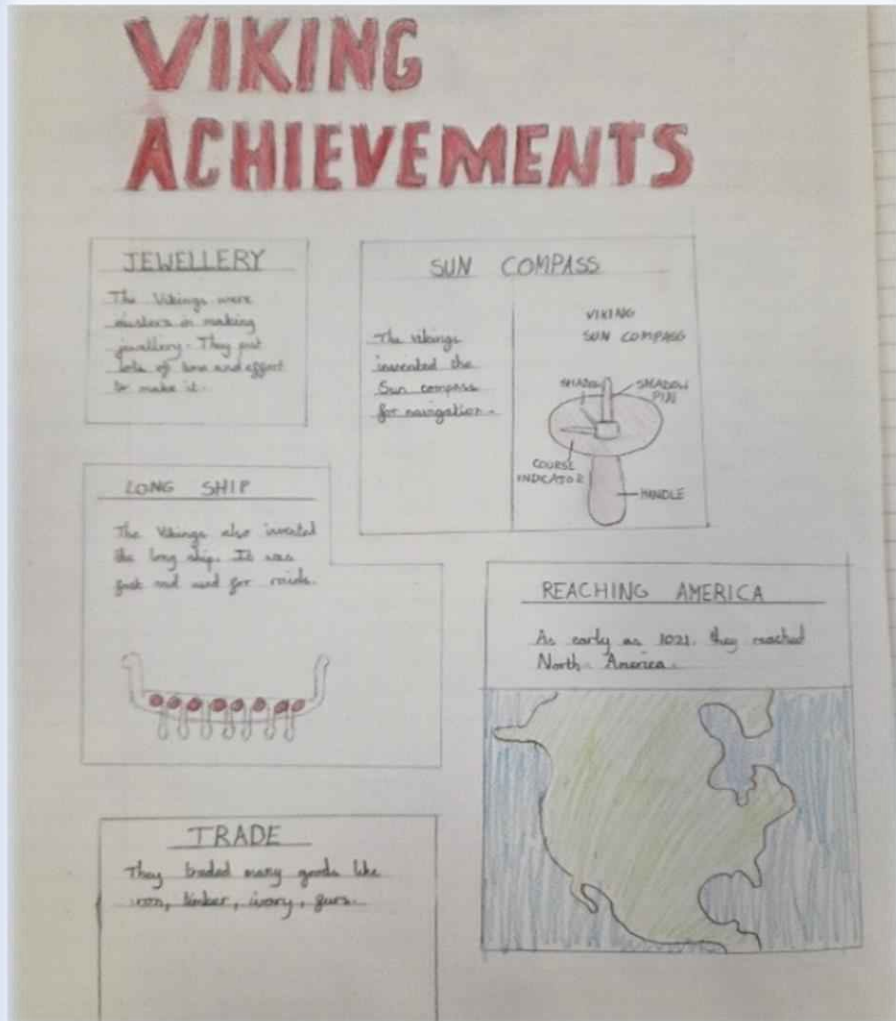 VIKING
ACHIEVEMENTS
JEWELLERY
The Vikings were
masters in making
jewellery. They put
lots of time and effort
to make it.
SUN COMPASS
The vikings
invented the
Sun compass
for navigation.
VIKING
SUN COMPASS
SHADOW
SHADOW
PIN
COURSE
INDICATOR
HANDLE
LONG SHIP
The Vikings also invented
the long ship. It was
fast and used for raids.
REACHING AMERICA
As early as 1021, they reached
North America.
TRADE
They traded many goods like
iron, timber, ivory, furs.